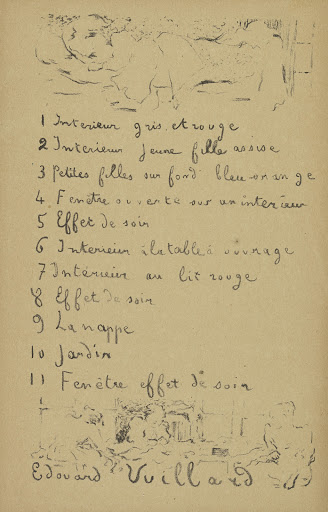 1 Interieur gris et rouge
2 Interieur jeune fille assise
3 Petites filles sur fond bleu orange
4 Fenêtre ouverte sur un interieur
5 Effet de soir
6 Interieur à la table à ouvrage
7 Intérieur au lit rouge
8 Effet de soir
9 La nappe
10 Jardin
11 Fenêtre effet de soir
Edouard Vuillard